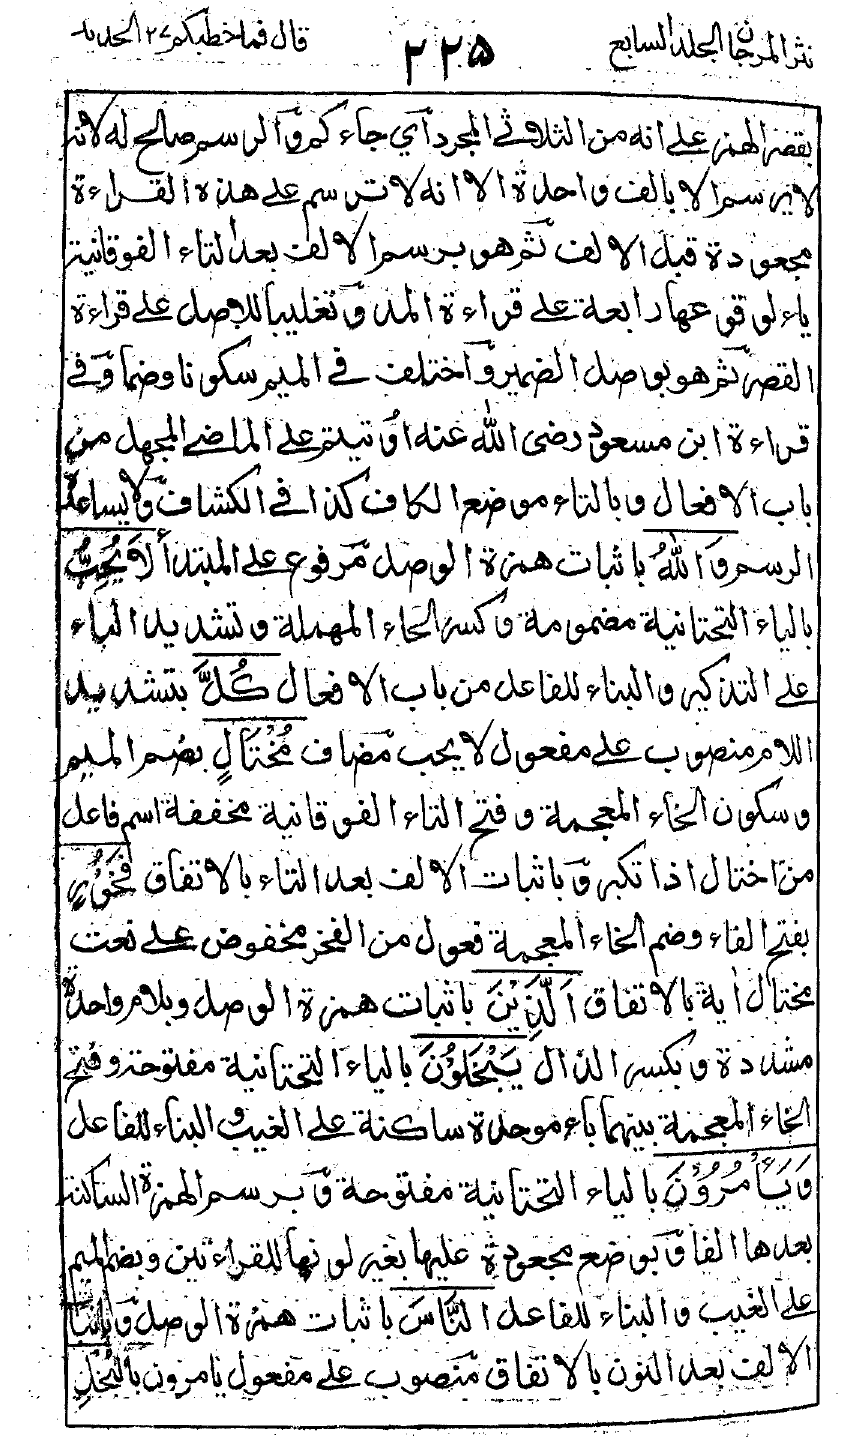 نثر المرجان الجلد السابع
٢٢٥
قال فما خطبكم ٢٧ الحديد
بقصر الهمز على انه من الثلاثى المجرد اى جاءكم و الرسم صالح له لانه
لا يرسم الا بالف واحدة الا انه لا ترسم على هذه القراءة
مجعودة قبل الالف ثم هو برسم الالف بعد التاء الفوقانية
ياء لوقوعها رابعة على قراءة المد و تغليبا للاصل على قراءة
القصر ثم هو بوصل الضمير و اختلف فى الميم سكونا وضما و فى
قراءة ابن مسعود رضى الله عنه اوتيتم على الماضى المجهل من
باب الافعال و بالتاء موضع الكاف كذا فى الكشاف و لا يساعده
الرسم وَاللهُ باثبات همزة الوصل مرفوع على المبتدأ لَا يُحِبُّ
بالياء التحتانية مضمومة و كسر الحاء المهملة و تشديد الباء
على التذكير و البناء للفاعل من باب الافعال كُلَّ بتشديد
اللام منصوب على مفعول لا يحب مضاف مُخْتَالٍ بضم الميم
و سكون الخاء المعجمة و فتح التاء الفوقانية مخففة اسم فاعل
من اختال اذا تكبر و باثبات الالف بعد التاء بالاتفاق فَخُوْرٍ
بفتح الفاء وضم الخاء المعجمة فعول من الفخر مخفوض على نعت
مختال أية بالاتفاق اَلَّذِيْنَ باثبات همزة الوصل و بلام واحدة
مشددة و بكسر الذال يَبْخَلُوْنَ بالياء التحتانية مفتوحة و فتح
الخاء المعجمة بينهما باء موحدة ساكنة على الغيب و البناء للفاعل
وَيَأْمُرُوْنَ بالياء التحتانية مفتوحة و برسم الهمزة الساكنة
بعدها الفا و بوضع مجعودة عليها بغير لونها للقراءتين و بضم الميم
على الغيب و البناء للفاعل النَّاسَ باثبات همزة الوصل و باثبات
الالف بعد النون بالاتفاق منصوب على مفعول يامرون بِالْبُخْلِ